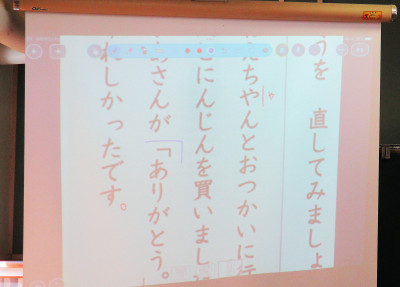 うを 直してみましょ
たちゃんとおつかいに行
とにんじんを買いまし
あさんが「ありがとう。
れしかったです。